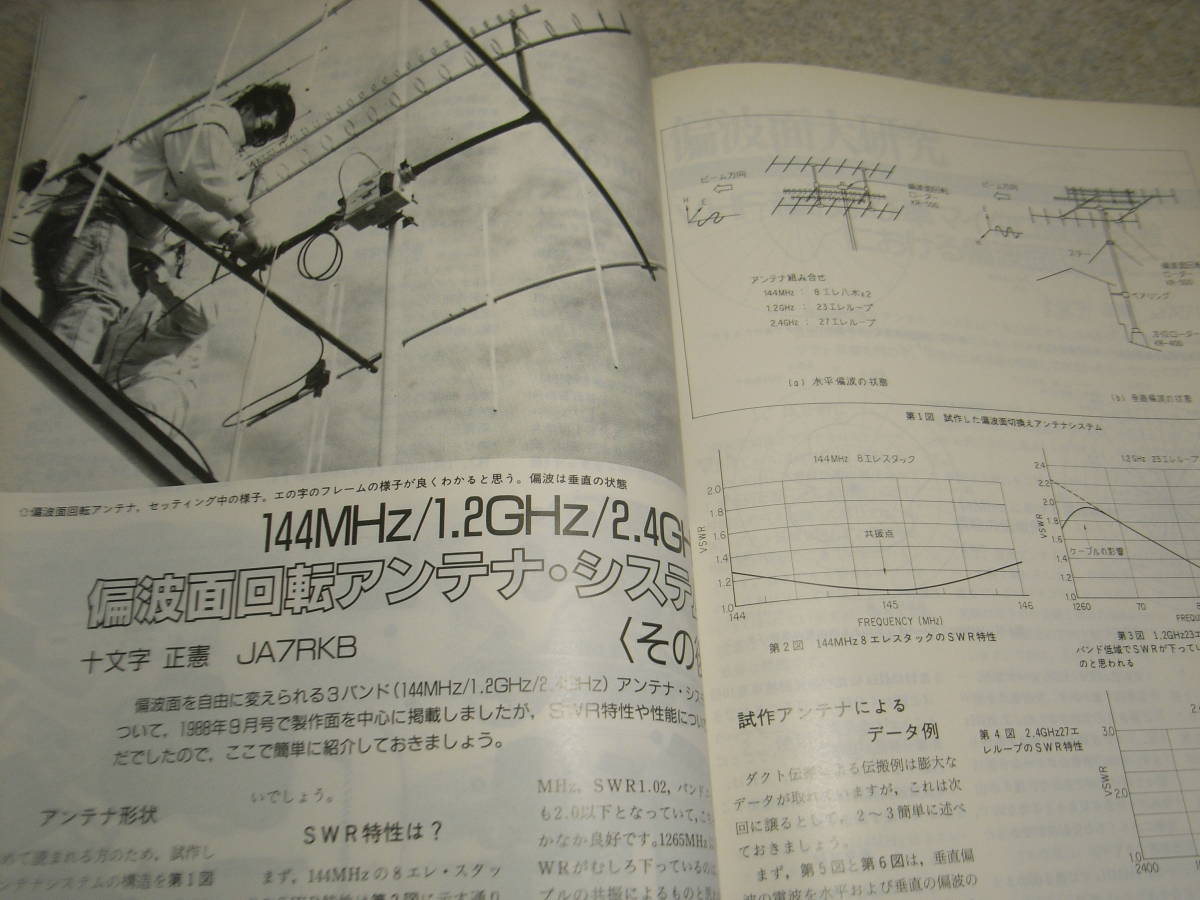 ☆偏波面回転アンテナ，セッティング中の様子。エの字のフレームの様子が良くわかると思う。偏波は垂直の状態
144MHz/1.2GHz/2.4GH
偏波面回転アンテナ・システム
〈その後
十文字 正憲 JA7RKB
偏波面を自由に変えられる3バンド(144MHz/1.2GHz/2.4GHz)アンテナ・シス
ついて，1988年9月号で製作面を中心に掲載しましたが，SWR特性や性能につい
だでしたので，ここで簡単に紹介しておきましょう。
アンテナ形状
めて読まれる方のため，試作し
ンテナシステムの構造を第1図
いでしょう。
SWR特性は？
まず，144MHzの8エレ・スタッ
SWR特性は第2図に示す通り
MHz，SWR1.02，バンド
も2.0以下となっていて，
かなか良好です。1265MHz
WRがむしろ下っているのは
ブルの共振によるものと思
偏波面大研究
ビーム方向
偏波面回転
ローター
KR-500
ビーム方向
ステー
偏波面回転
ローター
KR-500
ベアリング
方位ローター
KR-400
アンテナ組み合せ
144MHz： 8エレ八木×2
1.2GHz： 23エレループ
2.4GHz： 27エレループ
(a) 水平偏波の状態
(b) 垂直偏波の状態
第1図 試作した偏波面切換えアンテナシステム
144MHz 8エレスタック
2.0
1.8
1.6
1.4
1.2
1.0
VSWR
共振点
144
145
146
FREQUENCY (MHz)
第2図 144MHz8エレスタックのSWR特性
1.2GHz 23エレループ
2.4
2.2
2.0
1.8
1.6
1.4
1.2
1.0
VSWR
ケーブルの影響
1260
70
FREQU
第3図 1.2GHz23エ
バンド低域でSWRが下ってい
のと思われる
試作アンテナによる
データ例
ダクト伝搬による伝搬例は膨大な
データが取れていますが，これは次
回に譲るとして，2～3簡単に述べ
ておきましょう。
まず，第5図と第6図は，垂直偏
波の電波を水平および垂直の偏波の
第4図 2.4GHz27エ
レループのSWR特性
3.0
2.0
1.0
VSWR
2400